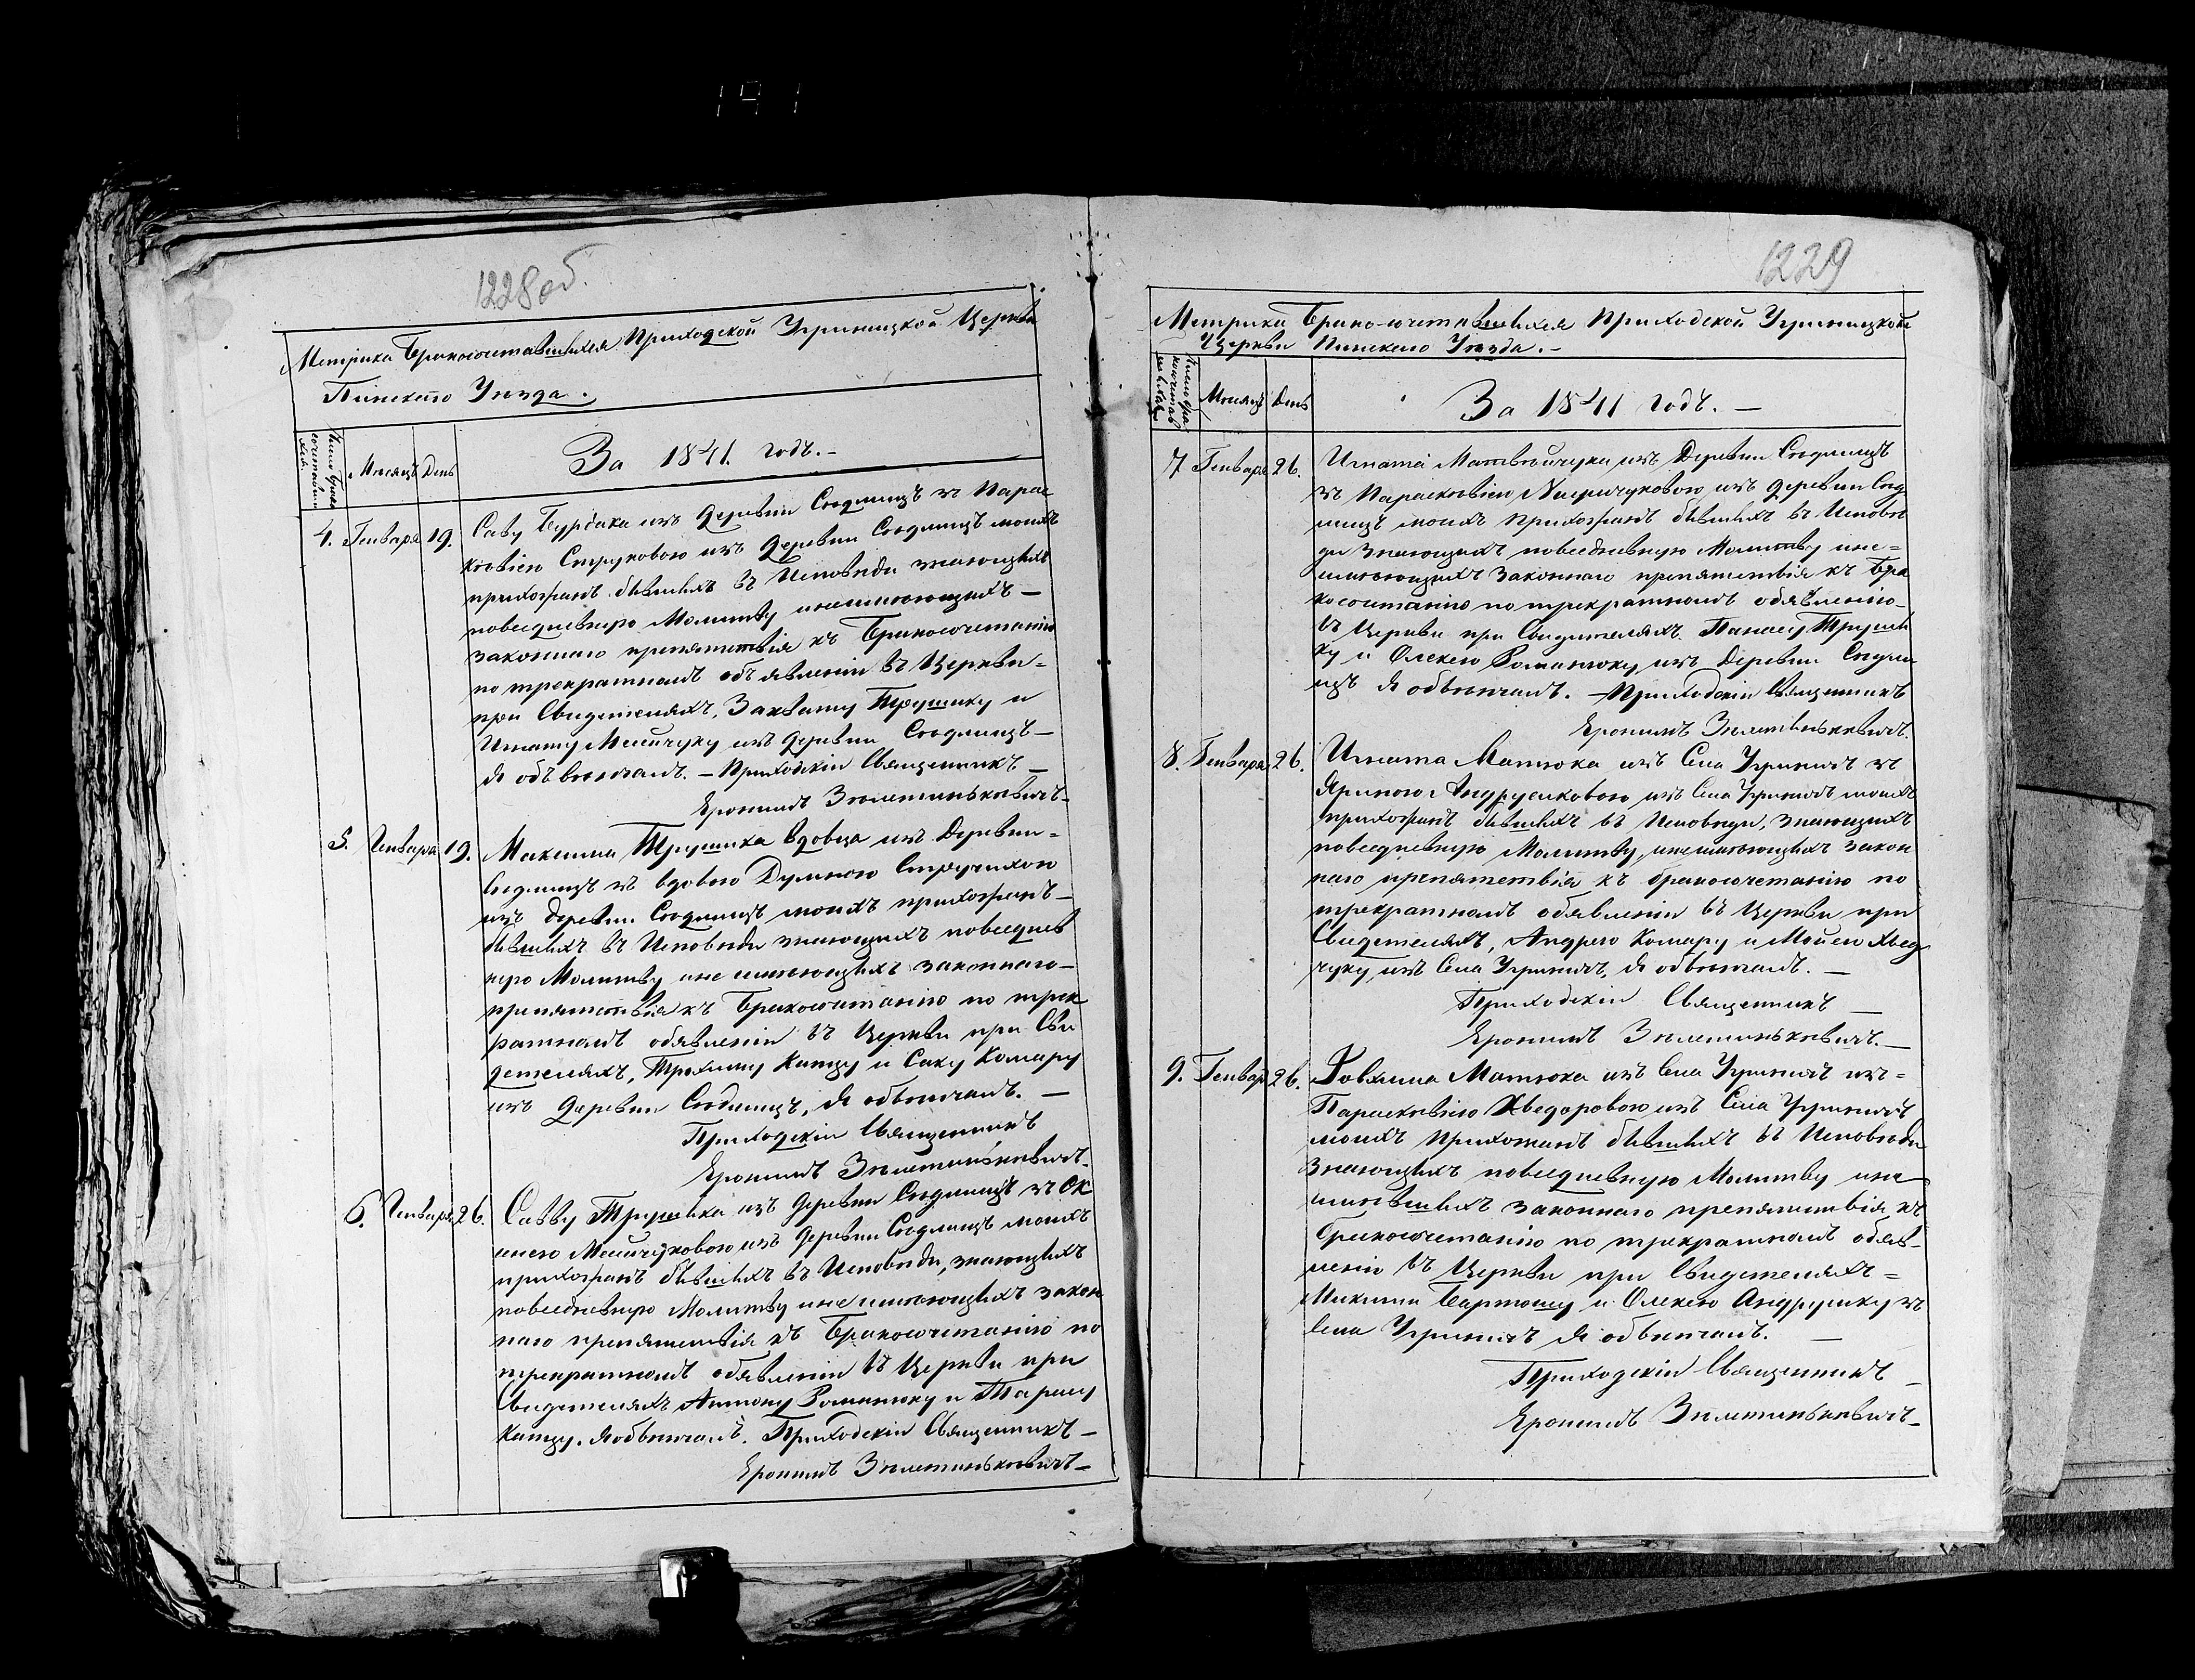 191
1228об.
Метрика Бракосочетавшихся Приходской Угриницкой Церкви
Пинскаго Уезда.
Число брако
сочетавших
хся.
Месяцъ
День
За 1841. годъ.-
4. Генваря 19. Саву Бурдака изъ Деревни Сѣдлищъ зъ Парас
ковіею Струковою изъ Деревни Сѣдлищъ моихъ
прихожанъ бывшихъ въ Исповѣди знающихъ
повседневную Молитву инеимѣющихъ —
законнаго препятствія къ Бракосочетанію
по трекратномъ объявленіи въ Церкви =
при Свидетеляхъ, Захвату Трушику и
Игнату Мейчуку изъ Деревни Сѣдлищъ —
Я объвѣнчалъ. — Приходскій Священникъ —
Еронимъ —
5. Генваря 19. Максима Трушика вдовца изъ Деревни =
Сѣдлищъ зъ вдовою Думною Стручихою
изъ деревни Сѣдлищъ моихъ прихожанъ —
бывшихъ въ Исповѣди знающихъ повседнев
ную Молитву ине имѣющихъ законнаго —
препятствія къ Бракосочетанію по трек
ратномъ обявленіи въ Церкви при Сви
детеляхъ, Трохиму Катцу и Саку Комару
изъ Деревни Сѣдлищъ, Я обвѣнчалъ. —
Приходскій Священникъ
Еронимъ
6. Генваря 26. Савву Трушика изъ Деревни Сѣдлищъ зъ Ок
инею Мейчуковою изъ Деревни Сѣдлищъ моихъ
прихожанъ бывшихъ въ Исповѣди, знающихъ
повседневную Молитву ине имѣющихъ закон
наго препятствія къ Бракосочетанію по
трекратномъ обявленіи въ Церкви при
Свидетеляхъ Антону Романюку и Тарасу
Катцу. Я обвѣнчалъ. Приходскій Священникъ —
Еронимъ —
1229
Метрика Бракосочетавшихся Приходской Угриницкой
Церкви Пинскаго Уезда. -
Число бра
косочетав
шихся
Месяцъ
День
За 1841 годъ. —
7 Генваря 26. Игната Матвейчука изъ Деревни Сѣдлищъ
зъ Парасковіею изъ деревни Сѣд
лищъ моихъ прихожанъ бывшихъ въ Исповѣ
ди знающихъ повседневную Молитву ине=
имѣющихъ Законнаго препятствія къ Бра
косочетанію по трекратномъ обявленію
въ Церкви при Свидетеляхъ. Панасу Труши
ку и Олексею Романюку изъ Деревни Сѣдли
щъ Я обвѣнчалъ. — Приходскій Священникъ
Еронимъ
8. Генваря 26. Игната Матюка изъ Села Угриничъ зъ
Яриною Андрусиковою изъ Села Угриничъ моихъ
прихожанъ бывшихъ въ Исповѣди, знающихъ
повседневную Молитву, инеимѣющихъ закон
наго препятствія къ бракосочетанію по
трекратномъ обявленіи въ Церкви при
Свидетеляхъ, Андрею Комару и Мойсею Хвед
чуку, изъ Села Угриничъ, Я обвѣнчалъ. —
Приходскій Священникъ —
Еронимъ —
9. Генвар 26. Матюка изъ Села Угриничъ изъ=
Парасковіею Хведоровою изъ Села Угриничъ
моихъ прихожанъ бывшихъ въ Исповѣди
знающихъ повседневную Молитву ине
имѣвшихъ законнаго препятствія къ
бракосочетанію по трекратномъ обяв-
леніи въ Церкви при Свидетеляхъ =
Микити Бартошу и Олексею Андрушку зъ
Села Угриничъ Я обвѣнчалъ. —
Приходскій Священникъ —
Еронимъ —